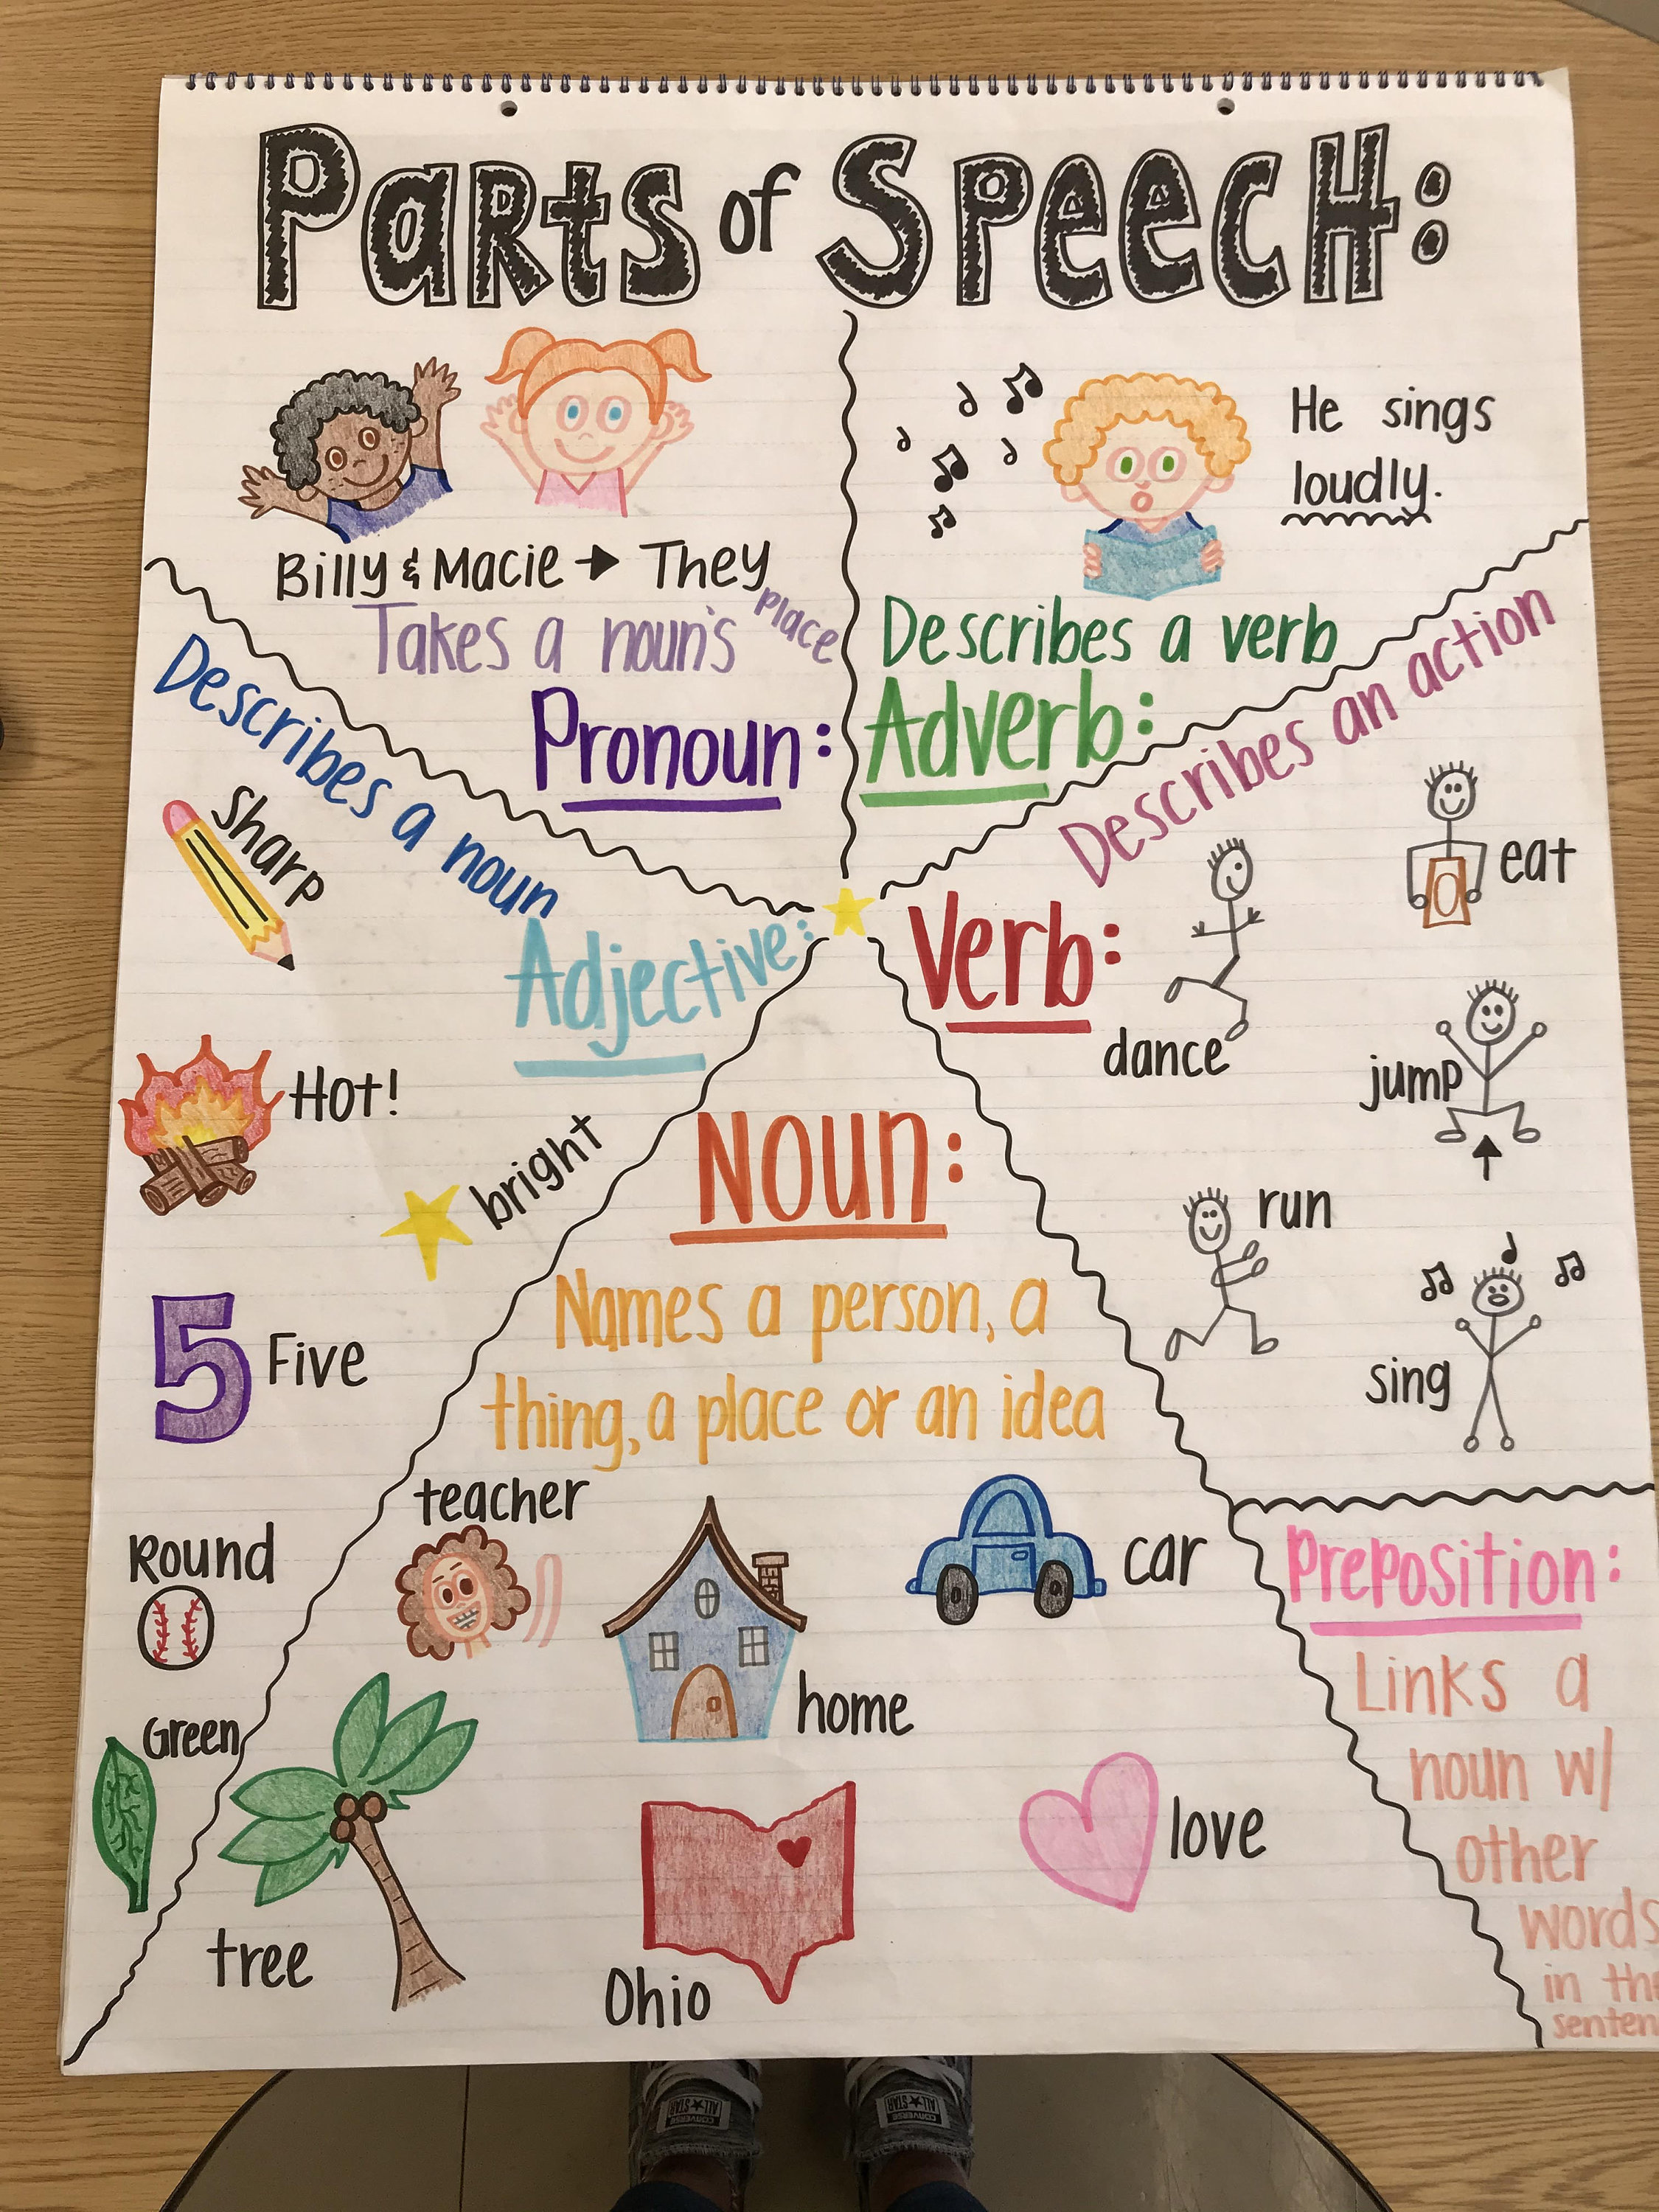 Parts of Speech:
Billy & Macie → They
Takes a noun's place
Pronoun:
He sings
loudly.
Describes a verb
Adverb:
Describes a noun
Adjective:
sharp
Hot!
bright
5 Five
Round
Green
Describes an action
Verb:
eat
dance
jump
run
sing
Noun:
Names a person, a
thing, a place or an idea
teacher
home
car
tree
Ohio
love
Preposition:
Links a
noun w/
other
words
in the
senten
CONVERSE
ALL STAR
CONVERSE
ALL STAR